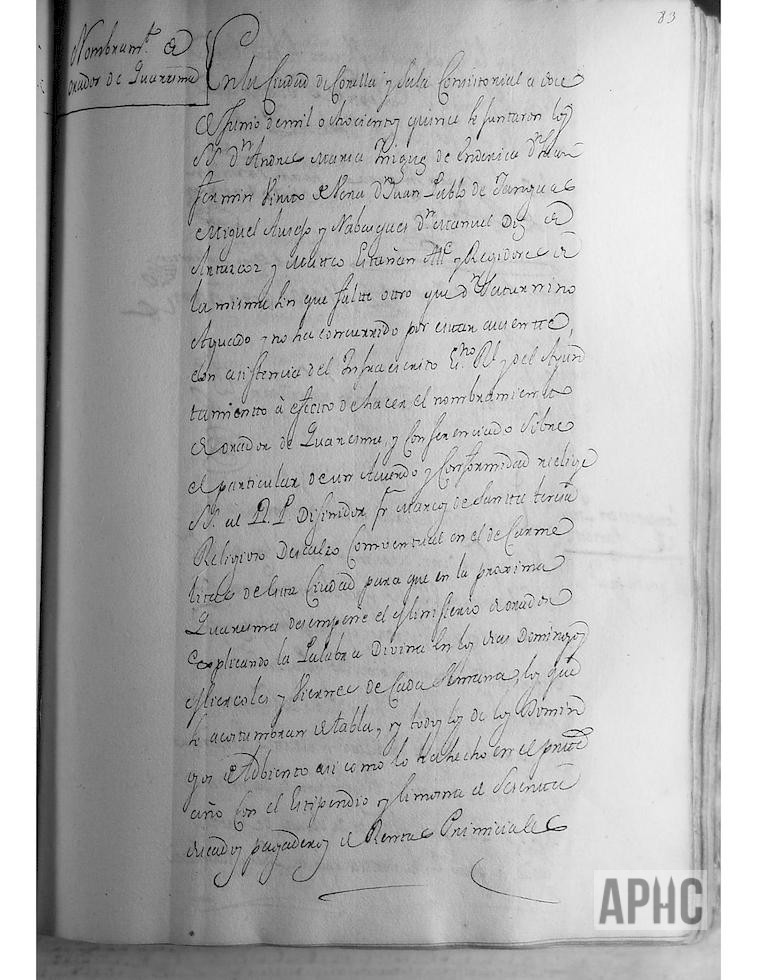 83
Nombram.to de
orador de Quaresma
En la Ciudad de Corella y Sala Consistorial a doce
de Junio de mil ochocientos quince se juntaron los
SS. Dn Andres Maria Iñiguez de Dn Juan
Fermin Virto de Vera Dn Juan Pablo de
Miguel y Nabasques Dn Manuel Diez de
y Matteo Estañan Alc.e y Regidores de
la misma sin que falte otro que Dn Saturnino
Aguado que no ha concurrido por estar ausentte,
con asistencia del Infraescrito Es.no Rl y del Ayun
tamientto à efecto de hacer el nombramientto
de orador de Quaresma, y Conferenciado Sobre
el particular de un Acuerdo y Conformidad
SS. al R. P. Difinidor Fr Marcos de Santta teresa
Religioso Descalzo Comventual en el de Carme
litas de Esta Ciudad para que en la proxima
Quaresma desempeñe el Ministerio de orador
explicando la Palabra Divina en los dias Domingos
Miercoles y Viernes de Cada Semana, y los que
se acostumbran de tabla, y todos los de los Domin
gos de Adbiento asi como lo ha hecho en el pnte
año Con el Estipendio y limosna de Setentta
ducados pagaderos de Rentas Primiciales
APHC